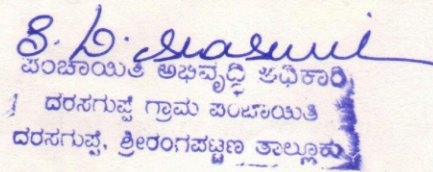 ಪಂಚಾಯಿತಿ ಅಭಿವೃದ್ಧಿ ಅಧಿಕಾರಿ
ದರಸಗುಪ್ಪೆ ಗ್ರಾಮ ಪಂಚಾಯಿತಿ
ದರಸಗುಪ್ಪೆ, ಶ್ರೀರಂಗಪಟ್ಟಣ ತಾಲ್ಲೂಕು